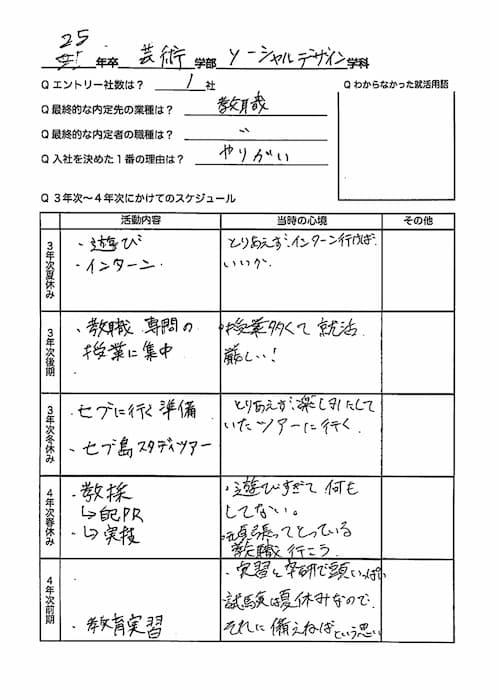 25年卒 芸術学部 ソーシャルデザイン学科
Q エントリー社数は？ 1社
Q わからなかった就活用語
Q 最終的な内定先の業種は？ 教職
Q 最終的な内定者の職種は？ 〃
Q 入社を決めた1番の理由は？ やりがい
Q 3年次〜4年次にかけてのスケジュール
活動内容 当時の心境 その他
3年次夏休み
・遊び
・インターン.
とりあえずインターン行けば、
いいか.
3年次後期
・教職 専門の
授業に集中
・授業多くて 就活
厳しい！
3年次冬休み
・セブに行く準備
・セブ島スタディツアー
とりあえず、楽しみにして
いたツアーに行く.
4年次春休み
・教採
↳自己PR
・↳実技
・遊びすぎて 何も
してない。
・頑張ってとっている
教職行こう.
4年次前期
・教育実習
・実習と卒研で頭いっぱい
試験は夏休みなので.
それに備えねばという思い